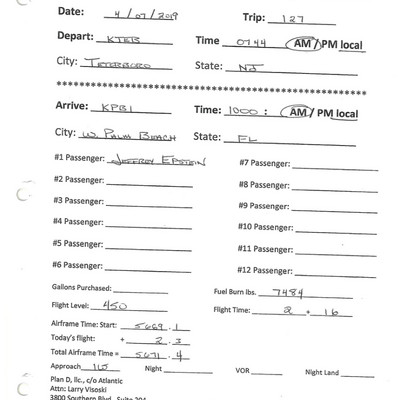 Date: 4/07/2019 Trip: 127
Depart: KTEB Time 0744 AM/PM local
City: TETERBORO State: NJ
************************************************
Arrive: KPBI Time: 1000 : AM/PM local
City: W. PALM BEACH State: FL
#1 Passenger: JEFFREY EPSTEIN #7 Passenger:
#2 Passenger: #8 Passenger:
#3 Passenger: #9 Passenger:
#4 Passenger: #10 Passenger:
#5 Passenger: #11 Passenger:
#6 Passenger: #12 Passenger:
Gallons Purchased: Fuel Burn lbs. 7484
Flight Level: 450 Flight Time: 2 + 16
Airframe Time: Start: 5669.1
Today's flight: + 2.3
Total Airframe Time = 5671.4
Approach ILS Night VOR Night Land
Plan D, llc, c/o Atlantic
Attn: Larry Visoski
3800 Southern Blvd, Suite 204